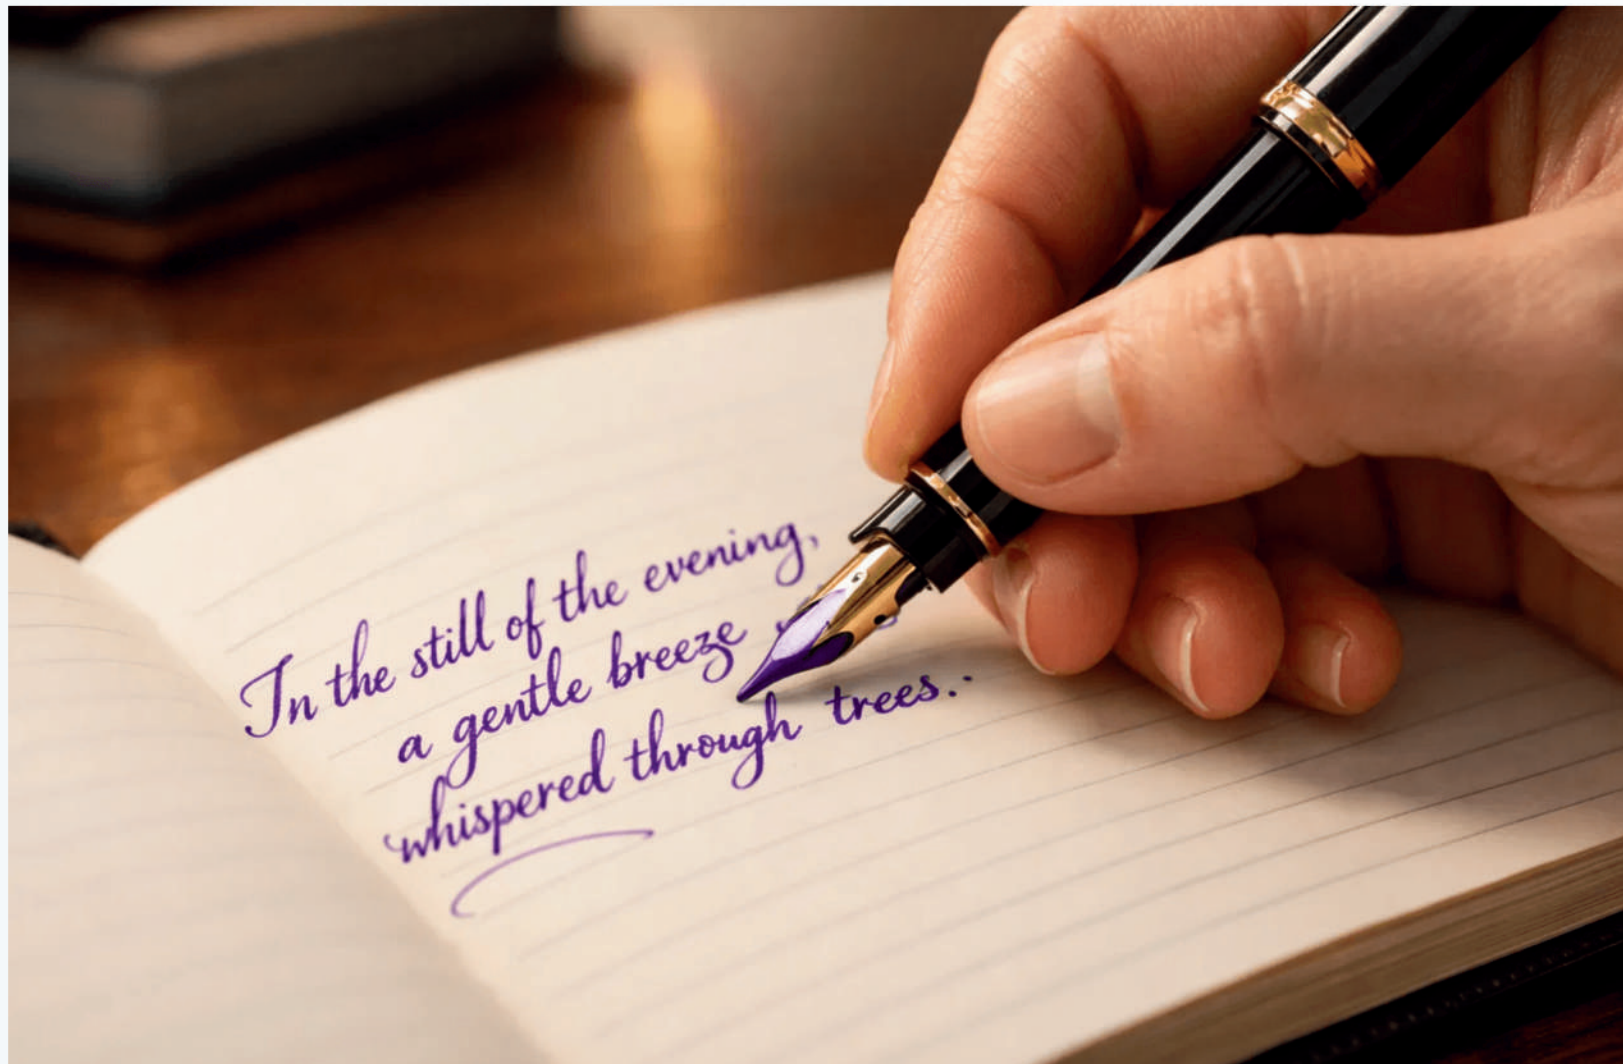 In the still of the evening,
a gentle breeze
whispered through trees..